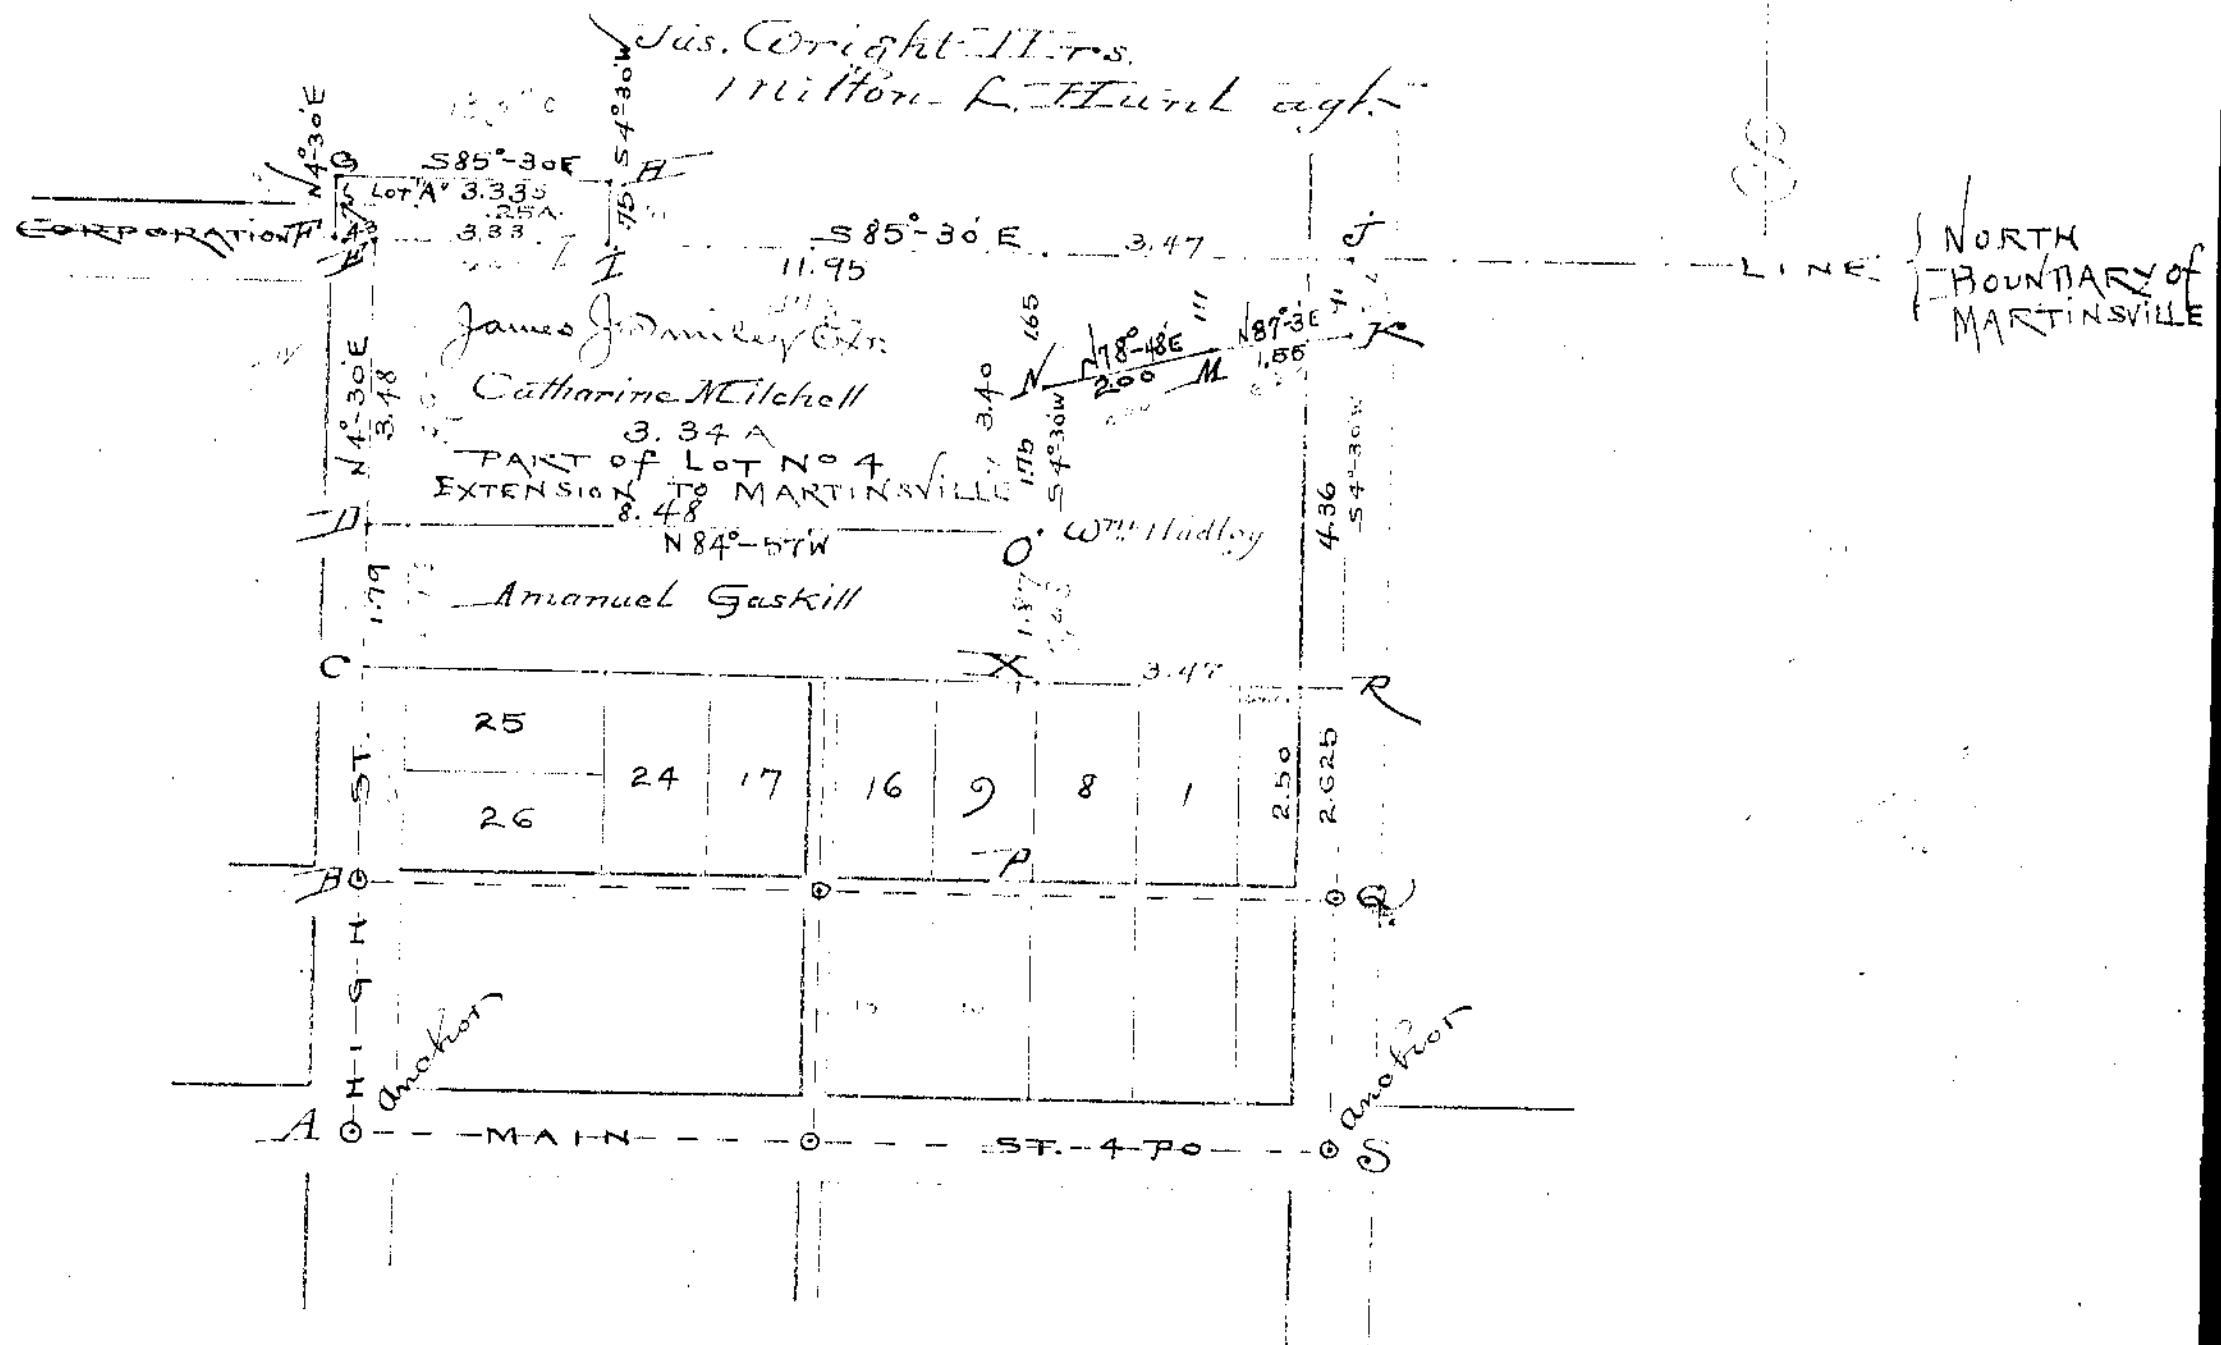 Jas. Wright Hrs.
Milton L. Hunt agt.
N4°-30'E
S4°-30'W
G
S85°-30E
H
LOT "A" 3.335
.25A.
.75
CORPORATION
F
.43
3.33
E
I
S85°-30'E
3.47
J
11.95
LINE
NORTH
BOUNDARY of
MARTINSVILLE
James J. Smiley Exr.
Catharine Mitchell
3.34 A
PART of LOT No 4
EXTENSION TO MARTINSVILLE
N4°-30'E
3.48
1.65
3.40
N
N78°-48'E
2.00
M
N87°-3'E
1.55
K
1.75
S4°-30'W
D
8.48
N84°-57'W
O
Wm Hadley
4.36
S4°-30'W
1.79
Amanuel Gaskill
1.87
C
X
3.47
R
25
24
17
16
9
8
1
26
2.50
2.625
B
P
Q
HIGH ST.
Anchor
Anchor
A
MAIN
ST. 4 PO
S